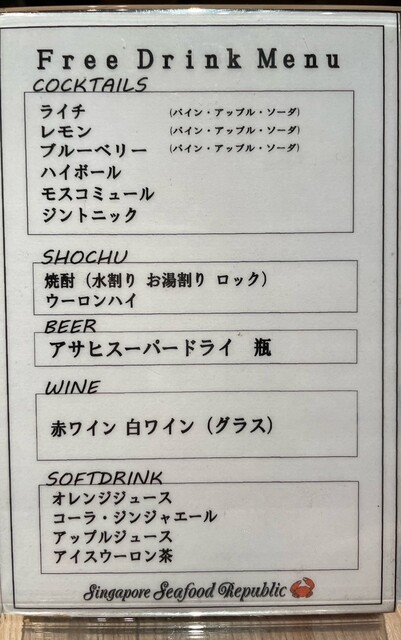 Free Drink Menu
COCKTAILS
ライチ (パイン・アップル・ソーダ)
レモン (パイン・アップル・ソーダ)
ブルーベリー (パイン・アップル・ソーダ)
ハイボール
モスコミュール
ジントニック
SHOCHU
焼酎（水割り お湯割り ロック）
ウーロンハイ
BEER
アサヒスーパードライ 瓶
WINE
赤ワイン 白ワイン（グラス）
SOFTDRINK
オレンジジュース
コーラ・ジンジャエール
アップルジュース
アイスウーロン茶
Singapore Seafood Republic